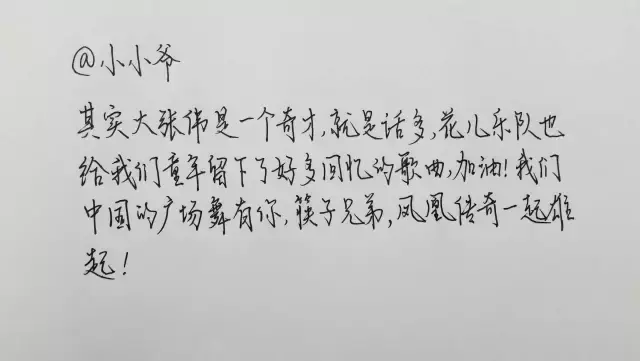 @小小爷
其实大张伟是一个奇才,就是话多,花儿乐队也
给我们童年留下了好多回忆的歌曲,加油!我们
中国的广场舞有你,筷子兄弟,凤凰传奇一起雄
起!